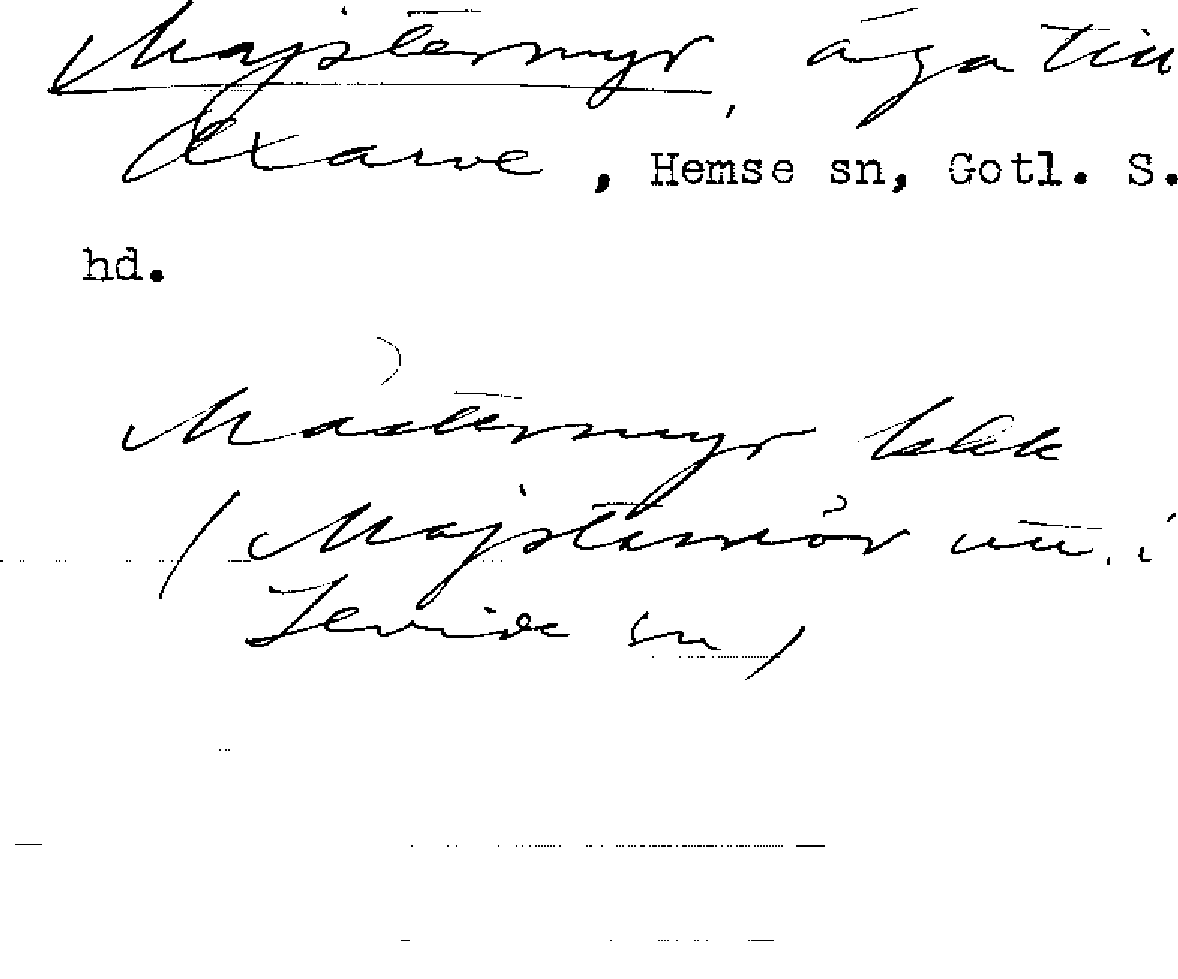 Majstermyr, äga till
Axarve, Hemse sn, Gotl. S.
hd.
Mästermyr blekk
(Majstermör utt. i
Levide sn)